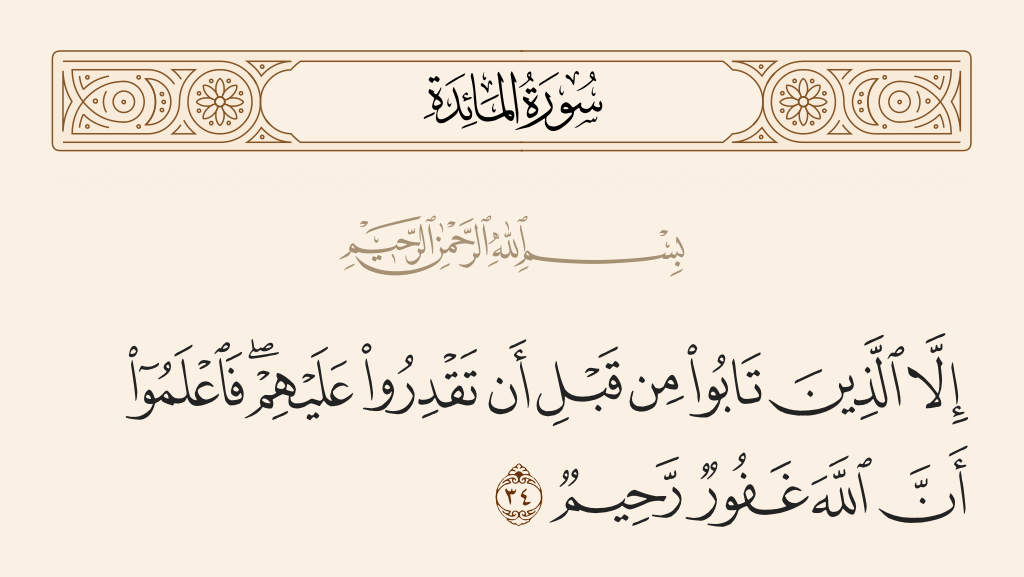 سُورَةُ المَائِدَةِ
بِسْمِ ٱللَّهِ ٱلرَّحْمَٰنِ ٱلرَّحِيمِ
إِلَّا ٱلَّذِينَ تَابُوا۟ مِن قَبْلِ أَن تَقْدِرُوا۟ عَلَيْهِمْ ۖ فَٱعْلَمُوٓا۟
أَنَّ ٱللَّهَ غَفُورٌ رَّحِيمٌ ٣٤